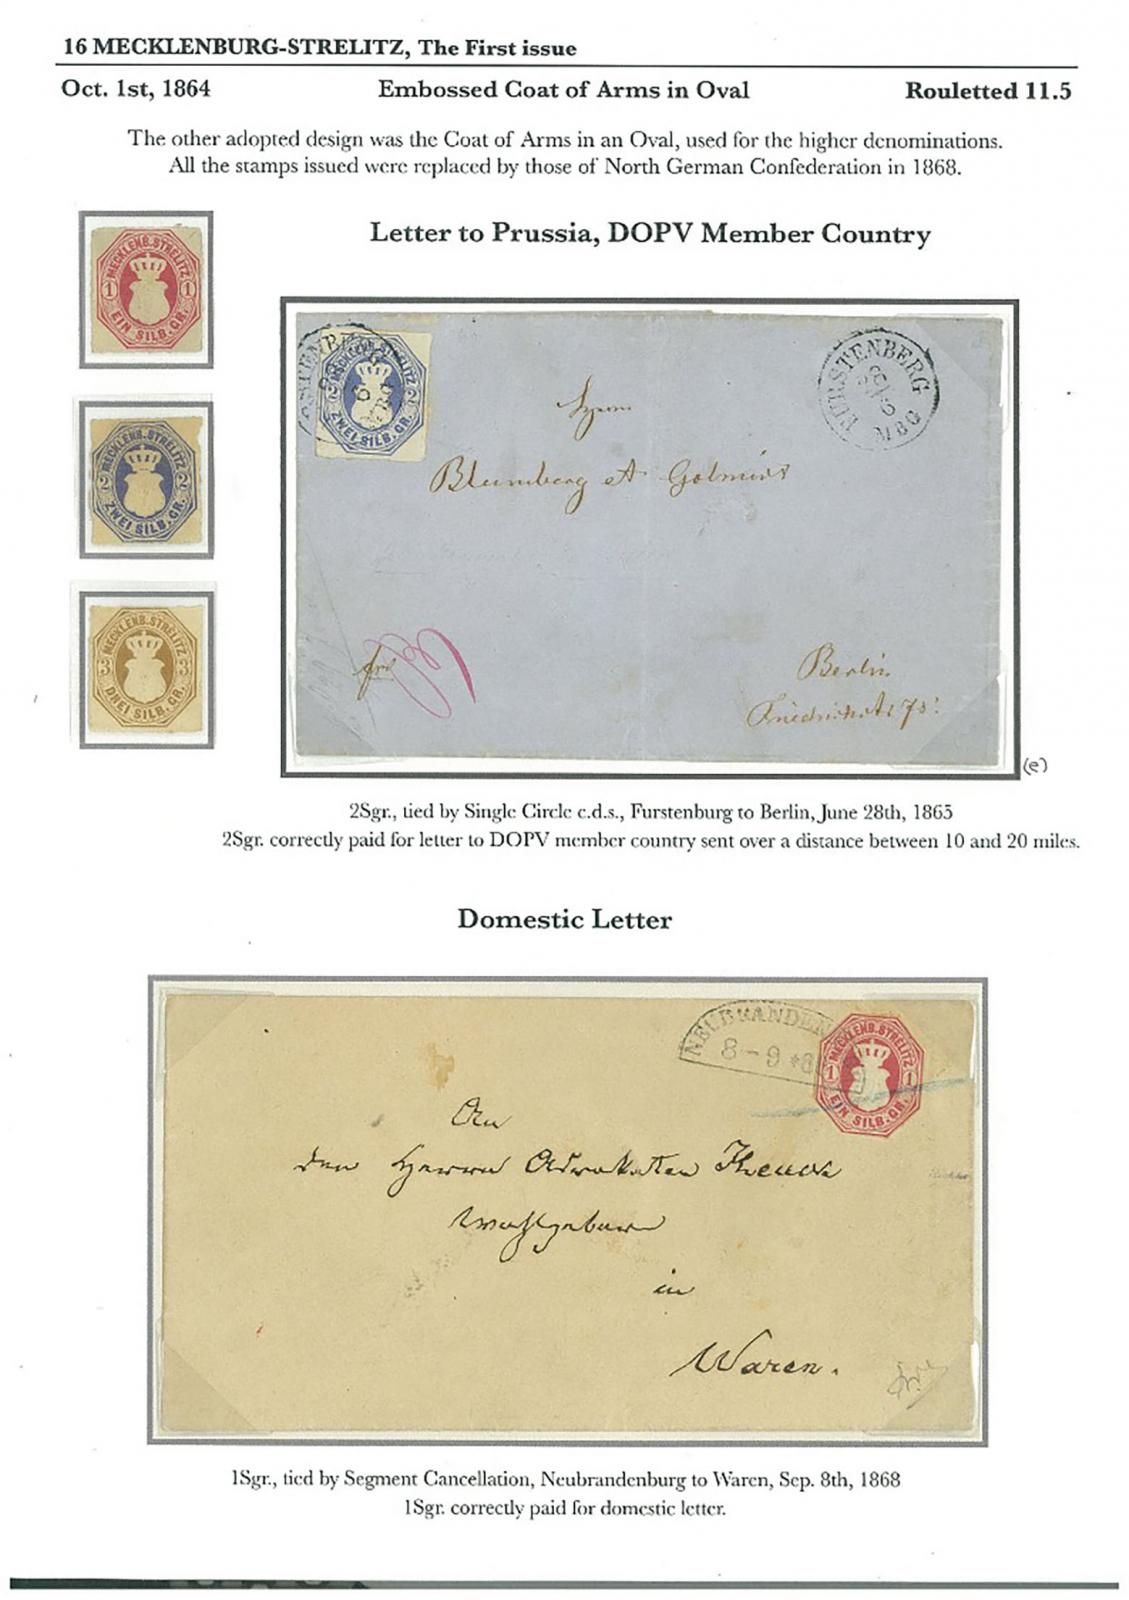 16 MECKLENBURG-STRELITZ, The First issue
Oct. 1st, 1864 Embossed Coat of Arms in Oval Rouletted 11.5
The other adopted design was the Coat of Arms in an Oval, used for the higher denominations.
All the stamps issued were replaced by those of North German Confederation in 1868.
Letter to Prussia, DOPV Member Country
MECKLENB. STRELITZ
1 1
EIN SILB. GR.
MECKLENB. STRELITZ
2 2
ZWEI SILB. GR.
MECKLENB. STRELITZ
3 3
DREI SILB. GR.
MECKLENB. STRELITZ
2 2
ZWEI SILB. GR.
FÜRSTENBERG
28 6
MBG
Herrn
Blumberg et
Berlin
(e)
2Sgr., tied by Single Circle c.d.s., Furstenburg to Berlin, June 28th, 1865
2Sgr. correctly paid for letter to DOPV member country sent over a distance between 10 and 20 miles.
Domestic Letter
NEUBRANDEN
8-9 *8
MECKLENB. STRELITZ
1 1
EIN SILB. GR.
An
den Herrn Advokaten
Wohlgeboren
in
Waren.
1Sgr., tied by Segment Cancellation, Neubrandenburg to Waren, Sep. 8th, 1868
1Sgr. correctly paid for domestic letter.